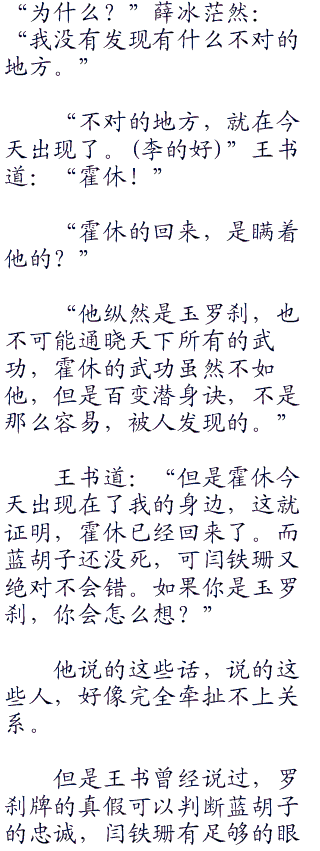 “为什么？”薛冰茫然：
“我没有发现有什么不对的
地方。”
“不对的地方，就在今
天出现了。(李的好)”王书
道：“霍休！”
“霍休的回来，是瞒着
他的？”
“他纵然是玉罗刹，也
不可能通晓天下所有的武
功，霍休的武功虽然不如
他，但是百变潜身诀，不是
那么容易，被人发现的。”
王书道：“但是霍休今
天出现在了我的身边，这就
证明，霍休已经回来了。而
蓝胡子还没死，可闫铁珊又
绝对不会错。如果你是玉罗
刹，你会怎么想？”
他说的这些话，说的这
些人，好像完全牵扯不上关
系。
但是王书曾经说过，罗
刹牌的真假可以判断蓝胡子
的忠诚，闫铁珊有足够的眼